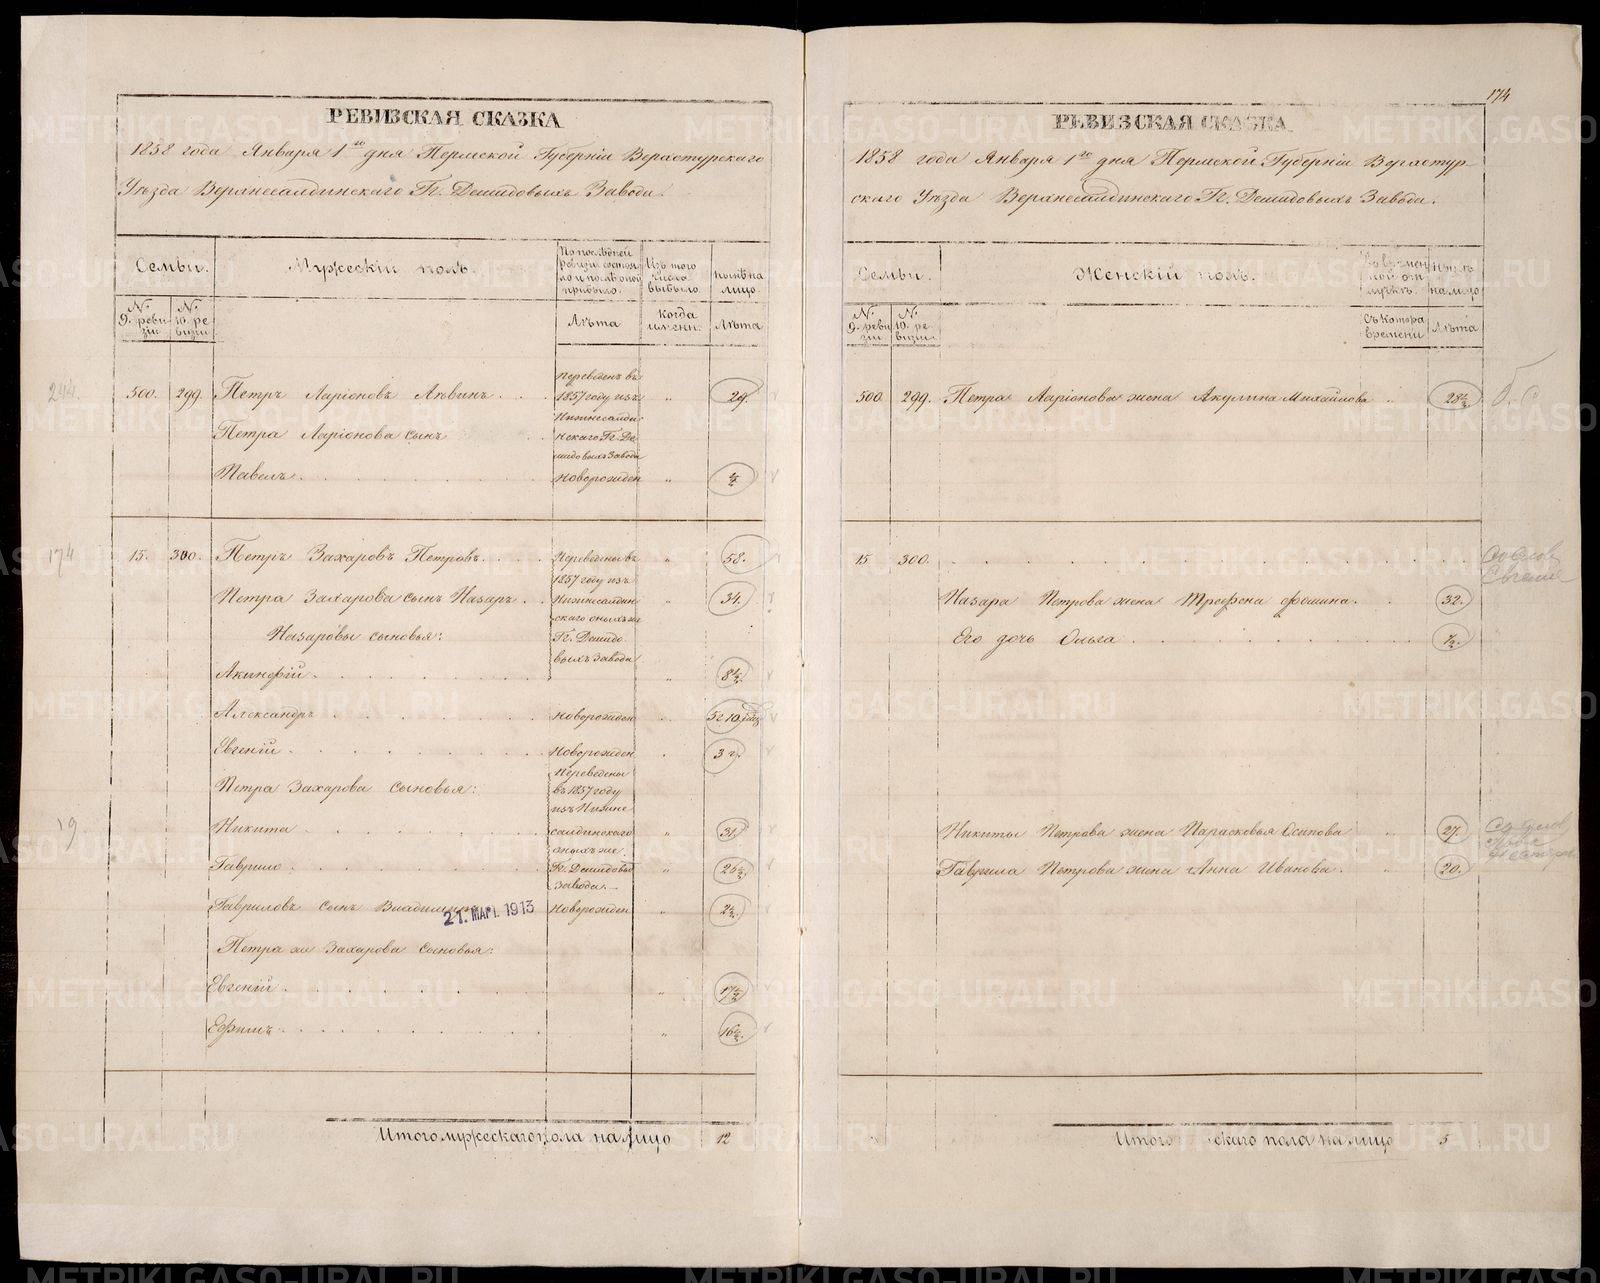 РЕВИЗСКАЯ СКАЗКА
1858 года Января 1го дня Пермской Губерніи Верхотурскаго
Уѣзда Верхнесалдинскаго Гг. Демидовыхъ Завода.
Семьи.
Мужескій полъ.
По послѣдней
ревизіи состоя
ло и послѣ оной
прибыло.
Изъ того
числа
выбыло.
нынѣ на
лицо.
№
9. реви
зіи
№
10. ре
визіи
Лѣта
Когда
именно.
Лѣта
244.
500.
299.
Петръ Ларіоновъ Лѣвинъ
Переведенъ въ
1857 году изъ
Нижнесалди
нскаго Гг. Де
мидовыхъ Завода
29
Петра Ларіонова сынъ
Павелъ
Новорожден
½
174
15.
300.
Петръ Захаровъ Петровъ
Переведены въ
1857 году изъ
Нижнесалдин
скаго оныхъ же
Гг. Демидо
выхъ Завода
58.
Петра Захарова сынъ Назаръ
34.
Назаровы сыновья:
Акинфій
8½
Александръ
Новорожден
5 г. 10 мѣс
Евгеній
Новорожден
3 г.
Петра Захарова сыновья:
Переведены
въ 1857 году
изъ Нижне
салдинскаго
оныхъ же
Гг. Демидовы
Завода.
19.
Никита
31.
Гаврило
26½
Гавриловъ сынъ Владимиръ
21. МАР. 1913
Новорожден
2½
Петра же Захарова сыновья:
Евгеній
17½
Ефимъ
16½
Итого мужескаго пола на лицо
12
174
РЕВИЗСКАЯ СКАЗКА
1858 года Января 1го дня Пермской Губерніи Верхотур
скаго Уѣзда Верхнесалдинскаго Гг. Демидовыхъ Завода.
Семьи.
Женскій полъ.
Въ времен
ной от
лучкѣ.
Нынѣ
на лицо
№
9. реви
зіи
№
10. ре
визіи
Съ котора
времени
Лѣта
500.
299.
Петра Ларіонова жена Акулина Михайлова
28½
15
300.
Назара Петрова жена Трефена Фомина.
32.
Его дочь Ольга
½.
Никиты Петрова жена Парасковья Осипова
27.
Гаврила Петрова жена Анна Иванова.
20.
Итого скаго пола на лицо
5
METRIKI.GASO-URAL.RU